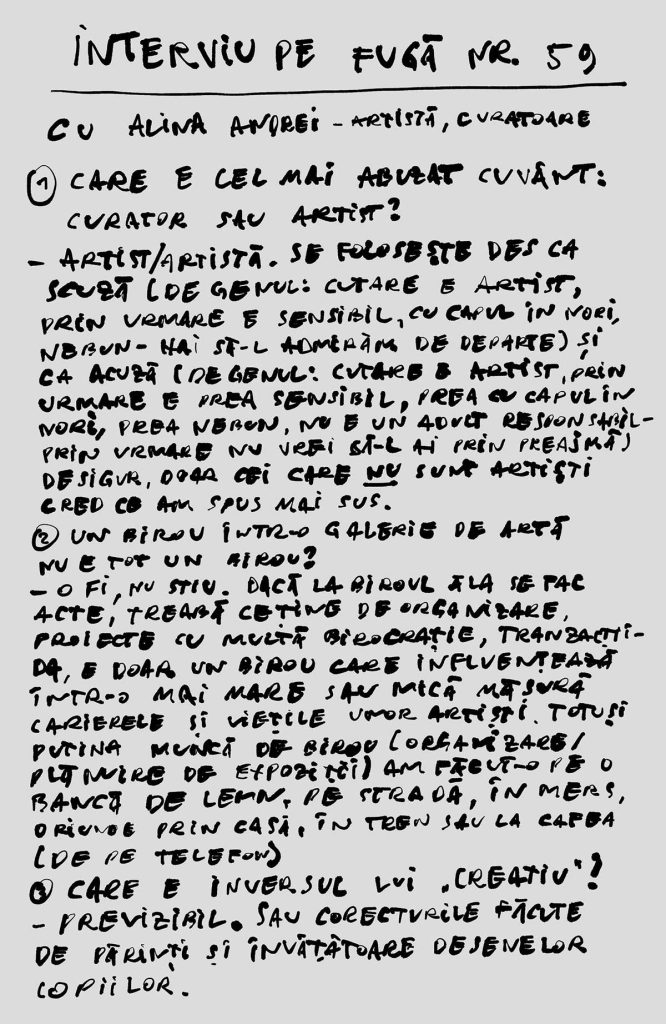 INTERVIU PE FUGĂ NR. 59
CU ALINA ANDREI - ARTISTĂ, CURATOARE
1 CARE E CEL MAI ABUZAT CUVÂNT:
CURATOR SAU ARTIST?
- ARTIST/ARTISTĂ. SE FOLOSEȘTE DES CA
SCUZĂ (DE GENUL: CUTARE E ARTIST,
PRIN URMARE E SENSIBIL, CU CAPUL ÎN NORI,
NEBUN - HAI SĂ-L ADMIRĂM DE DEPARTE) ȘI
CA ACUZĂ (DE GENUL: CUTARE E ARTIST, PRIN
URMARE E PREA SENSIBIL, PREA CU CAPUL ÎN
NORI, PREA NEBUN, NU E UN ADULT RESPONSABIL -
PRIN URMARE NU VREI SĂ-L AI PRIN PREAJMĂ)
DESIGUR, DOAR CEI CARE NU SUNT ARTIȘTI
CRED CE AM SPUS MAI SUS.
2 UN BIROU ÎNTR-O GALERIE DE ARTĂ
NU E TOT UN BIROU?
- O FI, NU STIU. DACĂ LA BIROUL ĂLA SE FAC
ACTE, TREABĂ CE ȚINE DE ORGANIZARE,
PROIECTE CU MULTĂ BIROCRAȚIE, TRANZACȚII -
DA, E DOAR UN BIROU CARE INFLUENȚEAZĂ
ÎNTR-O MAI MARE SAU MICĂ MĂSURĂ
CARIERELE ȘI VIEȚILE UNOR ARTIȘTI. TOTUȘI
PUȚINA MUNCĂ DE BIROU (ORGANIZARE/
PLĂNUIRE DE EXPOZIȚII) AM FĂCUT-O PE O
BANCĂ DE LEMN, PE STRADĂ, ÎN MERS,
ORIUNDE PRIN CASĂ, ÎN TREN SAU LA CAFEA
(DE PE TELEFON)
3 CARE E INVERSUL LUI „CREATIV"?
- PREVIZIBIL. SAU CORECTURILE FĂCUTE
DE PĂRINȚI ȘI ÎNVĂȚĂTOARE DESENELOR
COPIILOR.